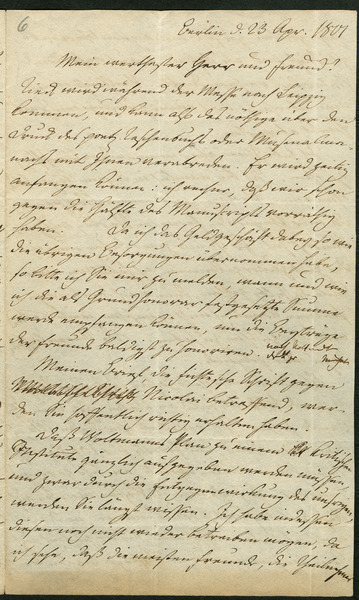 6
Berlin d. 23 Apr. 1801
Mein werthester Herr und Freund!
Tieck wird während der Messe nach Leipzig
kommen, und kann also das nöthige über den
Druck des poet. Taschenbuchs oder Musenalma-
nachs mit Ihnen verabreden. Er wird zeitig
anfangen können: ich rechne, daß wir schon
gegen die Hälfte des Manuscripts vorräthig
haben. Da ich das Geldgeschäft dabey so wie
die übrigen Besorgungen übernommen habe,
so bitte ich Sie mir zu melden, wann und wie
ich die als Grundhonorar festgesetzte Summe
werde empfangen können, um die Beyträge
der Freunde baldigst zu honoriren.
Meinen Brief die Fichtesche Schrift gegen
Nicolai betreffend, wer-
den Sie hoffentlich richtig erhalten haben.
Daß Woltmanns Plan zu einem kritischen
Institute gänzlich aufgegeben werden müssen,
und zwar durch die Entgegenwirkung des unsrigen,
werden Sie längst wissen. Ich habe indessen
diesen noch nicht wieder betreiben mögen, da
ich sehe, daß die meisten Freunde, die